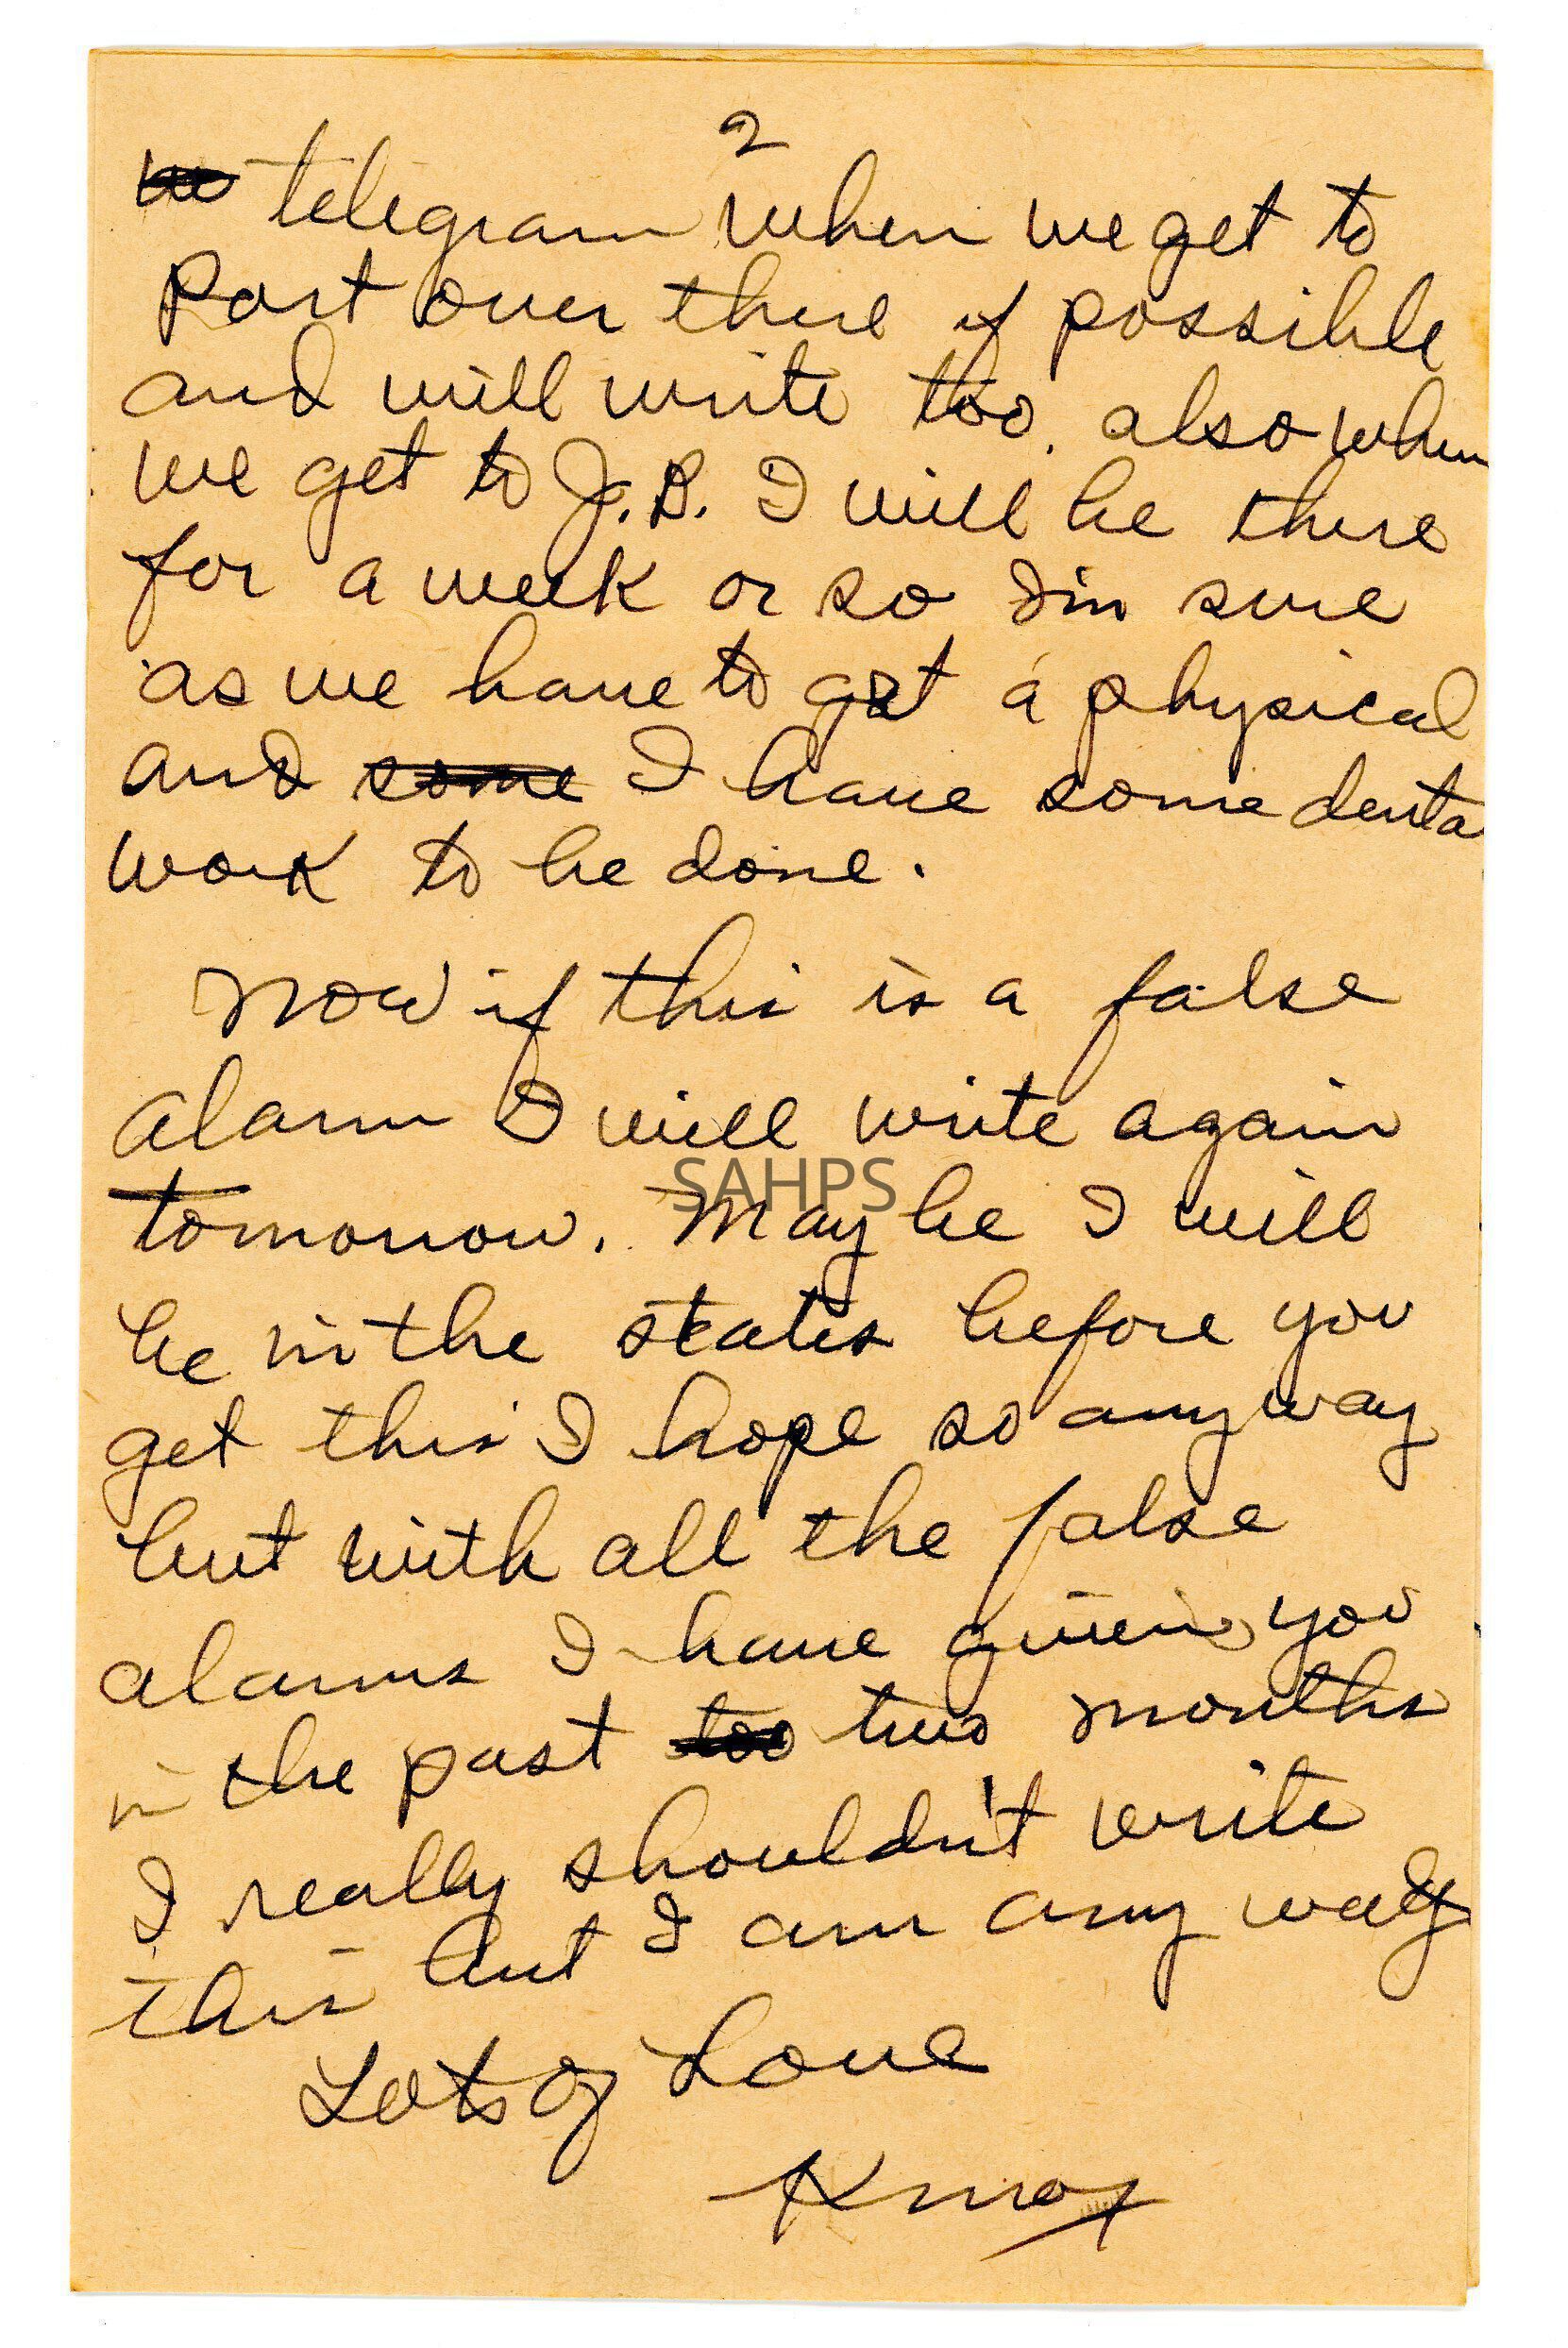 2
we telegram when we get to
Port over there if possible
and will write too. also when
we get to J.B. I will be there
for a week or so I'm sure
as we have to get a physical
and some I have some denta
work to be done.
Now if this is a false
alarm I will write again
tomorrow. May be I will
be in the states before you
get this I hope so any way
but with all the false
alarms I have given you
in the past too two months
I really shouldn't write
this but I am any way
Lots of Love
Knox
SAHPS